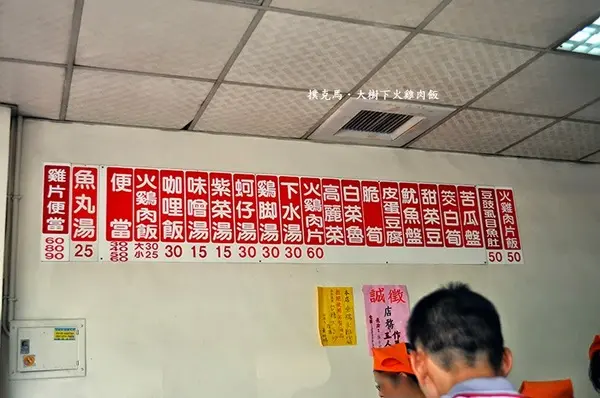 撲克馬・大樹下火雞肉飯
雞片便當 60 80 90
魚丸湯 25
便當
火鷄肉飯 大30 小25
咖哩飯 30
味噌湯 15
紫菜湯 15
蚵仔湯 30
鷄脚湯 30
下水湯 30
火鷄肉片 60
高麗菜
白菜魯
脆筍
皮蛋豆腐
魷魚盤
甜菜豆
筊白筍
苦瓜盤
豆豉虱目魚肚 50
火雞肉片飯 50
誠徵
店務工作